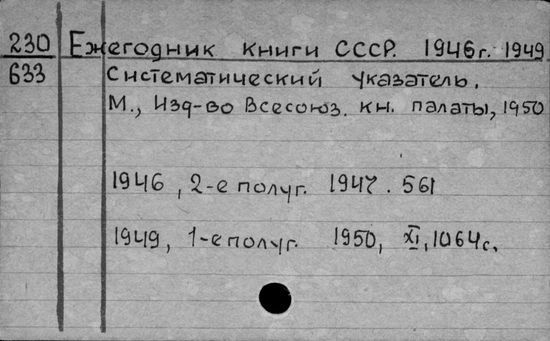 230 Ежегодник книги СССР. 1946г. 1949
633 Систематический указатель.
М., Изд-во Всесоюз. кн. палаты, 1950
1946, 2-е полуг. 1947. 561
1949, 1-е полуг. 1950, XI, 1064с.